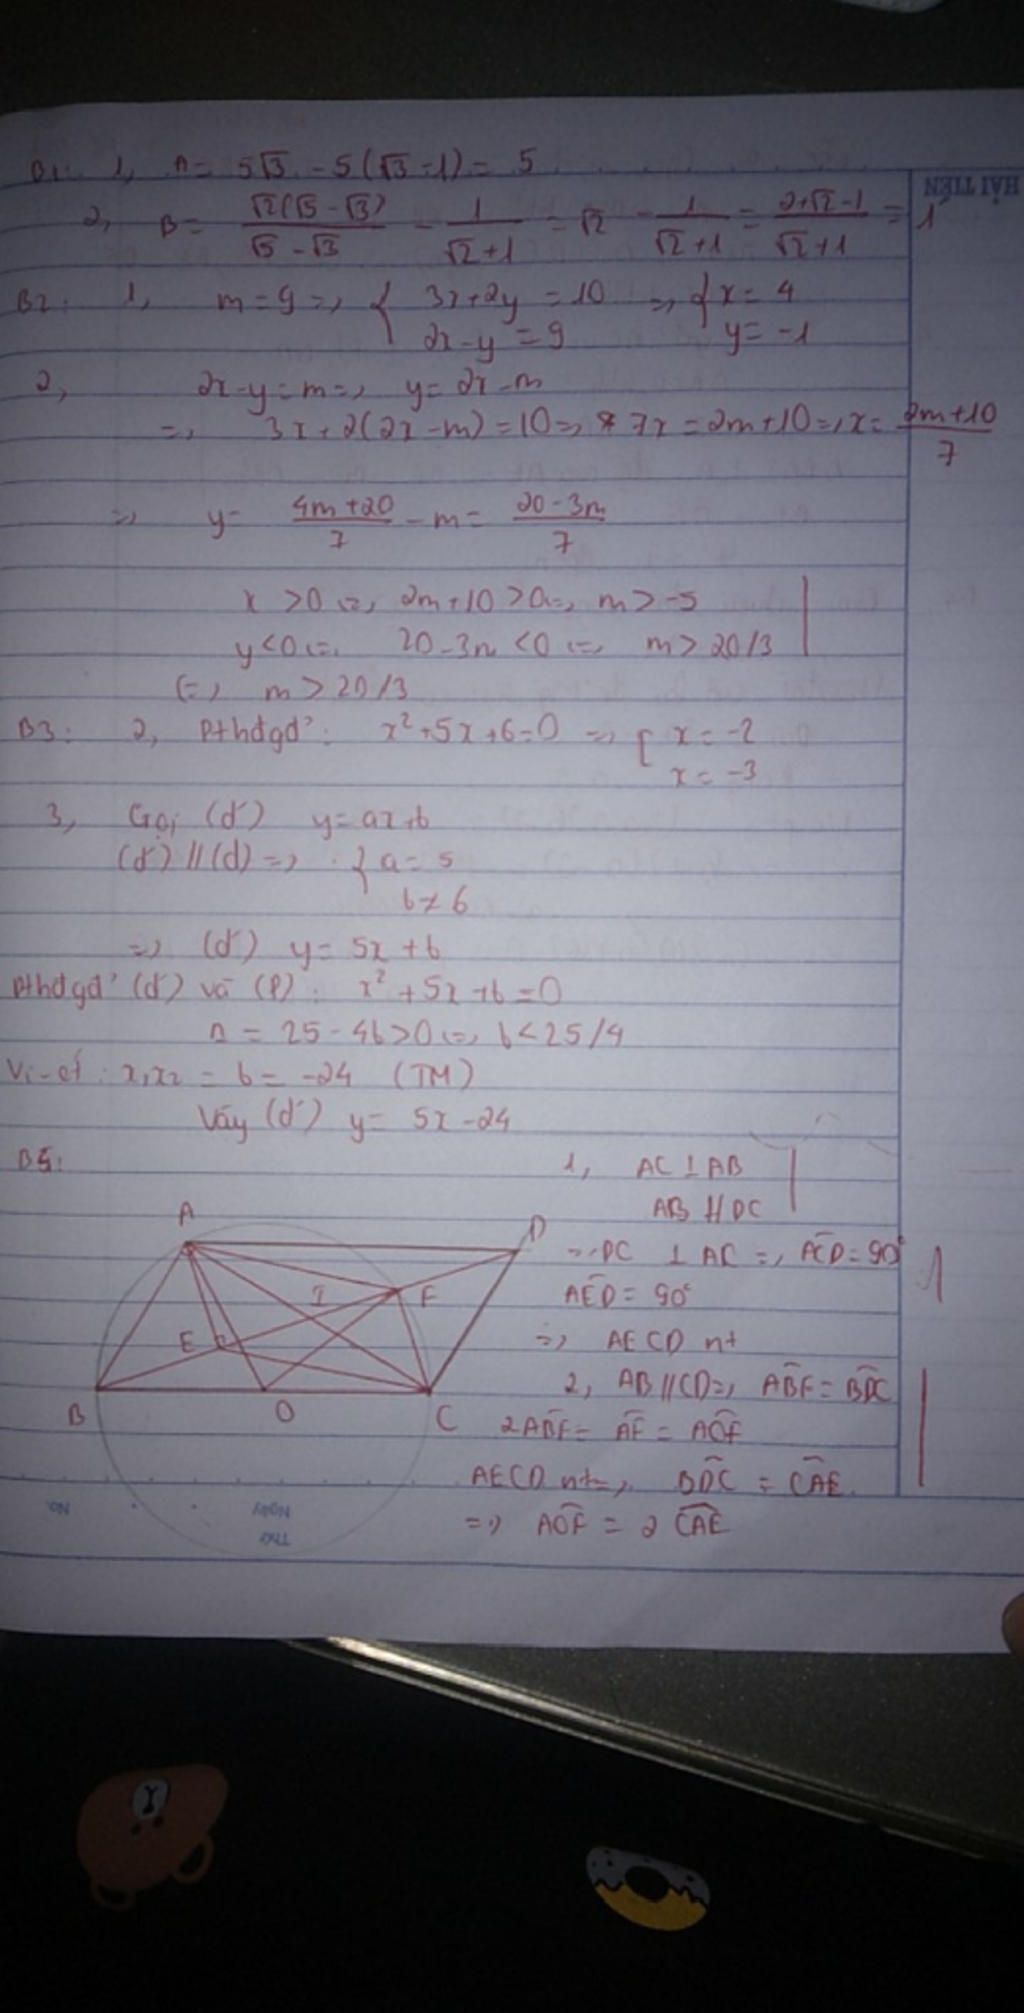 B1: 1, A = 5√3 - 5(√3 - 1) = 5
2, B = √2(√5 - √3)/(√5 - √3) - 1/(√2+1) = √2 - 1/(√2+1) = (2+√2-1)/(√2+1) = 1
HẢI TIẾN
B2: 1, m = 9 => { 3x+2y = 10 => { x = 4
2x-y = 9 y = -1
2, 2x-y = m => y = 2x-m
=> 3x+2(2x-m) = 10 => 7x = 2m+10 => x = (2m+10)/7
=> y = (4m+20)/7 - m = (20-3m)/7
x > 0 <=> 2m+10 > 0 <=> m > -5
y < 0 <=> 20-3m < 0 <=> m > 20/3
<=> m > 20/3
B3: 2, Pthđgđ': x²+5x+6=0 => [ x = -2
x = -3
3, Gọi (d') y = ax+b
(d') // (d) => { a = 5
b ≠ 6
=> (d') y = 5x+b
Pthđgđ' (d') và (P): x²+5x+b=0
Δ = 25-4b > 0 <=> b < 25/4
Vi-ét: x₁x₂ = b = -24 (TM)
Vậy (d') y = 5x-24
B5: 1, AC ⊥ AB
AB // DC
=> DC ⊥ AC => ACD = 90°
AED = 90°
=> AECD nt
2, AB//CD => ABF = BDC
2ABF = AF = AOF
AECD nt => BDC = CAE
=> AOF = 2 CAE
A
D
I
F
E
B
O
C
No.
Ngày
Thứ